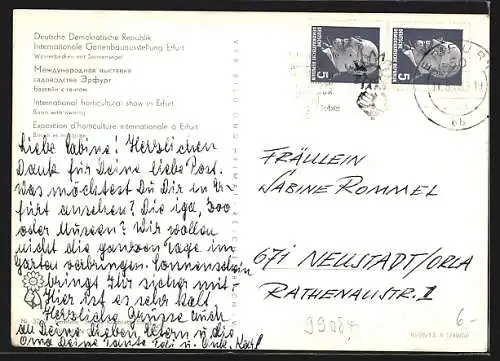 Deutsche Demokratische Republik
Internationale Gartenbauausstellung Erfurt
Wasserbecken mit Sonnensegel
Международная выставка
садоводства Эрфурт
бассейн с тентом
International horticultural show in Erfurt
Basin with awning
Exposition d'horticulture internationale à Erfurt
Liebe Sabine! Herzlichen
Dank für Deine liebe Post.
Was möchtest Du Dir in Er-
furt ansehen? Die iga, Zoo
oder Museen? Wir wollen
nicht die ganzen Tage im
Garten verbringen. Sonnenschein
bringt Ihr sicher mit.
Hier ist es sehr kalt.
Herzliche Grüsse auch
an Deine lieben Eltern u. die
Oma Deine Tante Edi u. Onk. Karl
5
5
ERFURT
FRÄULEIN
SABINE ROMMEL
671 NEUSTADT/ORLA
RATHENAUSTR. 1
99084
6.-